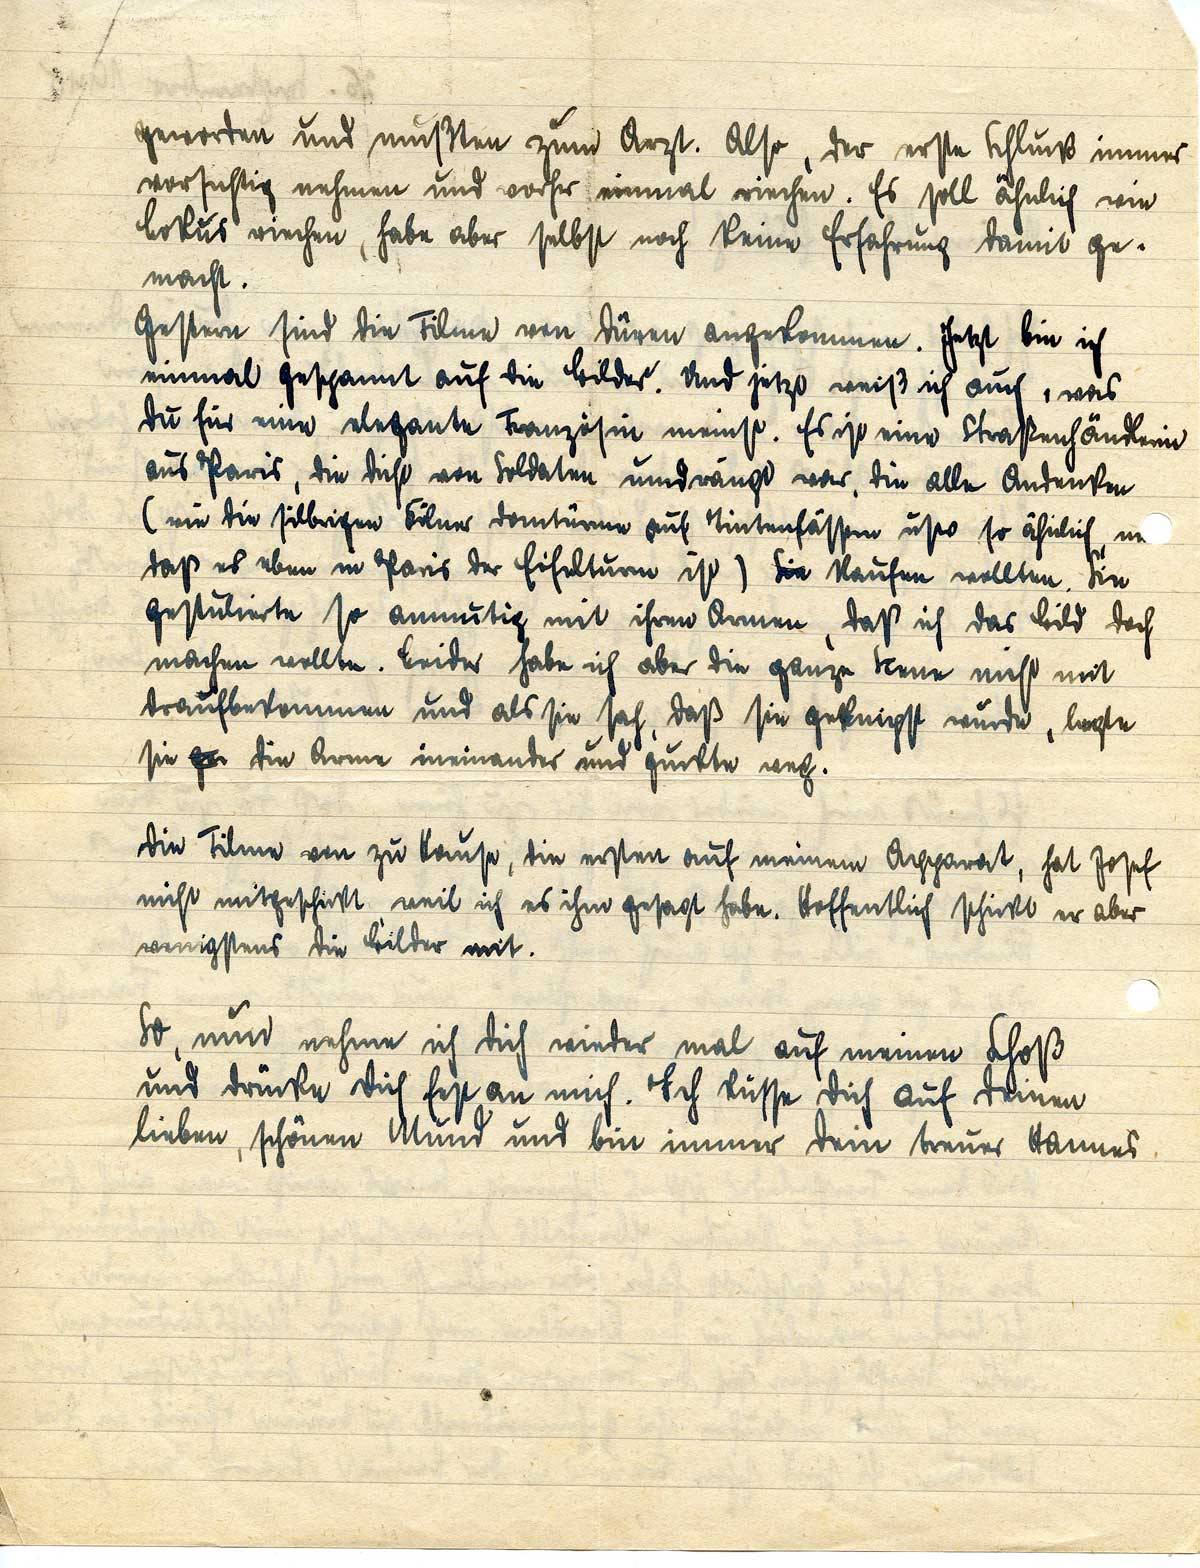 geworden und mußten zum Arzt. Also, der erste Schluck immer
vorsichtig nehmen und vorher einmal riechen. Es soll ähnlich wie
Lokus riechen, habe aber selbst noch keine Erfahrung damit ge-
macht.
Gestern sind die Filme von Düren angekommen. Jetzt bin ich
einmal gespannt auf die Bilder. Und jetzt weiß ich auch, was
Du für eine elegante Französin meinst. Es ist eine Straßenhändlerin
aus Paris, die dicht von Soldaten umdrängt war, die alle Andenken
(wie die silbrigen Kölner Domtürme auf Tintenfässern usw so ähnlich,
daß es eben in Paris der Eifelturm ist) Sie kaufen wollten. Sie
gestulierte so anmutig mit ihren Armen, daß ich das Bild doch
machen wollte. Leider habe ich aber die ganze Scene nicht mit
draufbekommen und als sie sah, daß sie geknipst wurde, legte
sie die Arme ineinander und guckte weg.
Die Filme von zu Hause, die ersten auf meinem Apparat, hat Josef
nicht mitgeschickt weil ich es ihm gesagt habe. Hoffentlich schickt er aber
wenigstens die Bilder mit.
So, nun nehme ich Dich wieder mal auf meinen Schoß
und drücke Dich fest an mich. Ich küsse Dich auf Deinen
lieben, schönen Mund und bin immer Dein treuer Hannes.